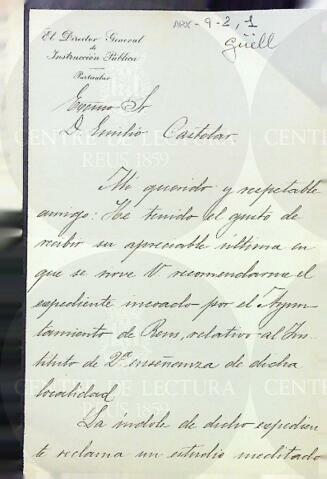 El Director General
de
Instrucción Pública
Particular
9-2,1
güell
Excmo Sr
D. Emilio Castelar
Mi querido y respetable
amigo: He tenido el gusto de
recibir su apreciable última en
que se sirve V recomendarme el
expediente incoado por el Ayun
tamiento de Reus, relativo al Ins-
tituto de 2ª enseñanza de dicha
localidad
La índole de dicho expedien
te reclama un estudio meditado
CENTRE DE LECTURA
REUS 1859